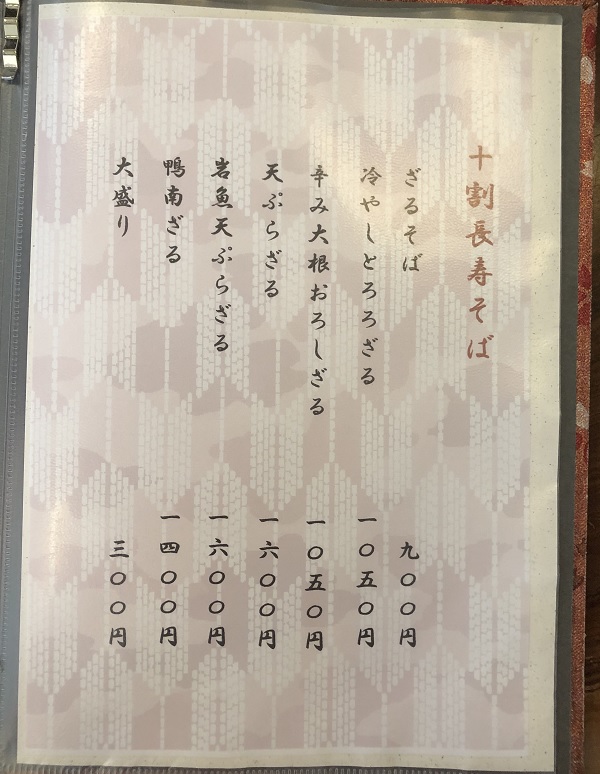 十割長寿そば
ざるそば 九〇〇円
冷やしとろろざる 一〇五〇円
辛み大根おろしざる 一〇五〇円
天ぷらざる 一六〇〇円
岩魚天ぷらざる 一六〇〇円
鴨南ざる 一四〇〇円
大盛り 三〇〇円